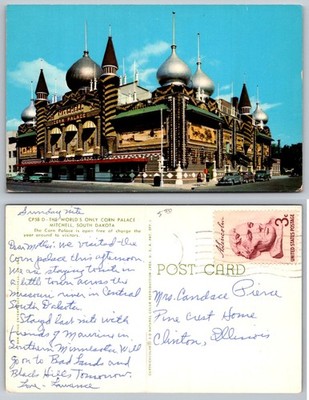 CORN
PALACE
Sunday nite
CPSR II - THE WORLD'S ONLY CORN PALACE
MITCHELL, SOUTH DAKOTA
The Corn Palace is open free of charge the
year around to visitors.
Dear Mother: We visited the
Corn palace this afternoon.
We are staying tonite in
a little town across the
Missouri river in Central
South Dakota.
Stayed last nite with
friends of Maurine in
Southern Minnesota. Will
go to Bad Lands and
Black Hills Tomorrow.
Love - Lawrence
POST CARD
3¢
UNITED STATES POSTAGE
Mrs. Candace Pierce
Pine Crest Home
Clinton, Illinois